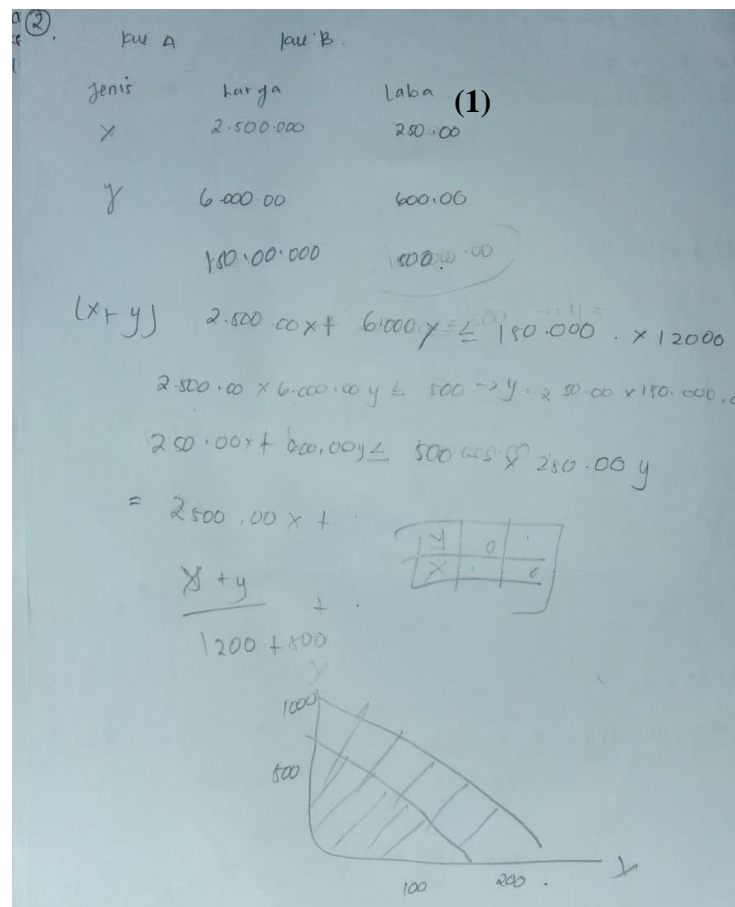 ②.
kue A kue B.
Jenis harga Laba (1)
X 2.500.000 250.00
y 6.000.00 600.00
150.00.000
(x+y) 2.500.00x+ 6.000y ≤ 150.000. x 12000
2.500.00 x 6.000.00 y ≤ 500 → y. 250.00 x 150.000,0
250.00x+ 600,00y ≤ 500 x 250.00 y
= 2500.00 x +
y 0 .
x . 0
x + y +.
1200 + 800
1000
500
100 200.